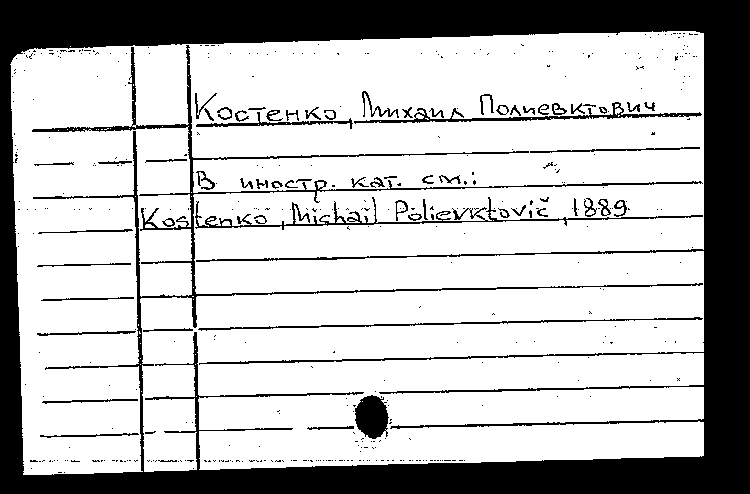 Костенко, Михаил Полиевктович
В иностр. кат. см.:
Kostenko, Michail Polievktovič, 1889